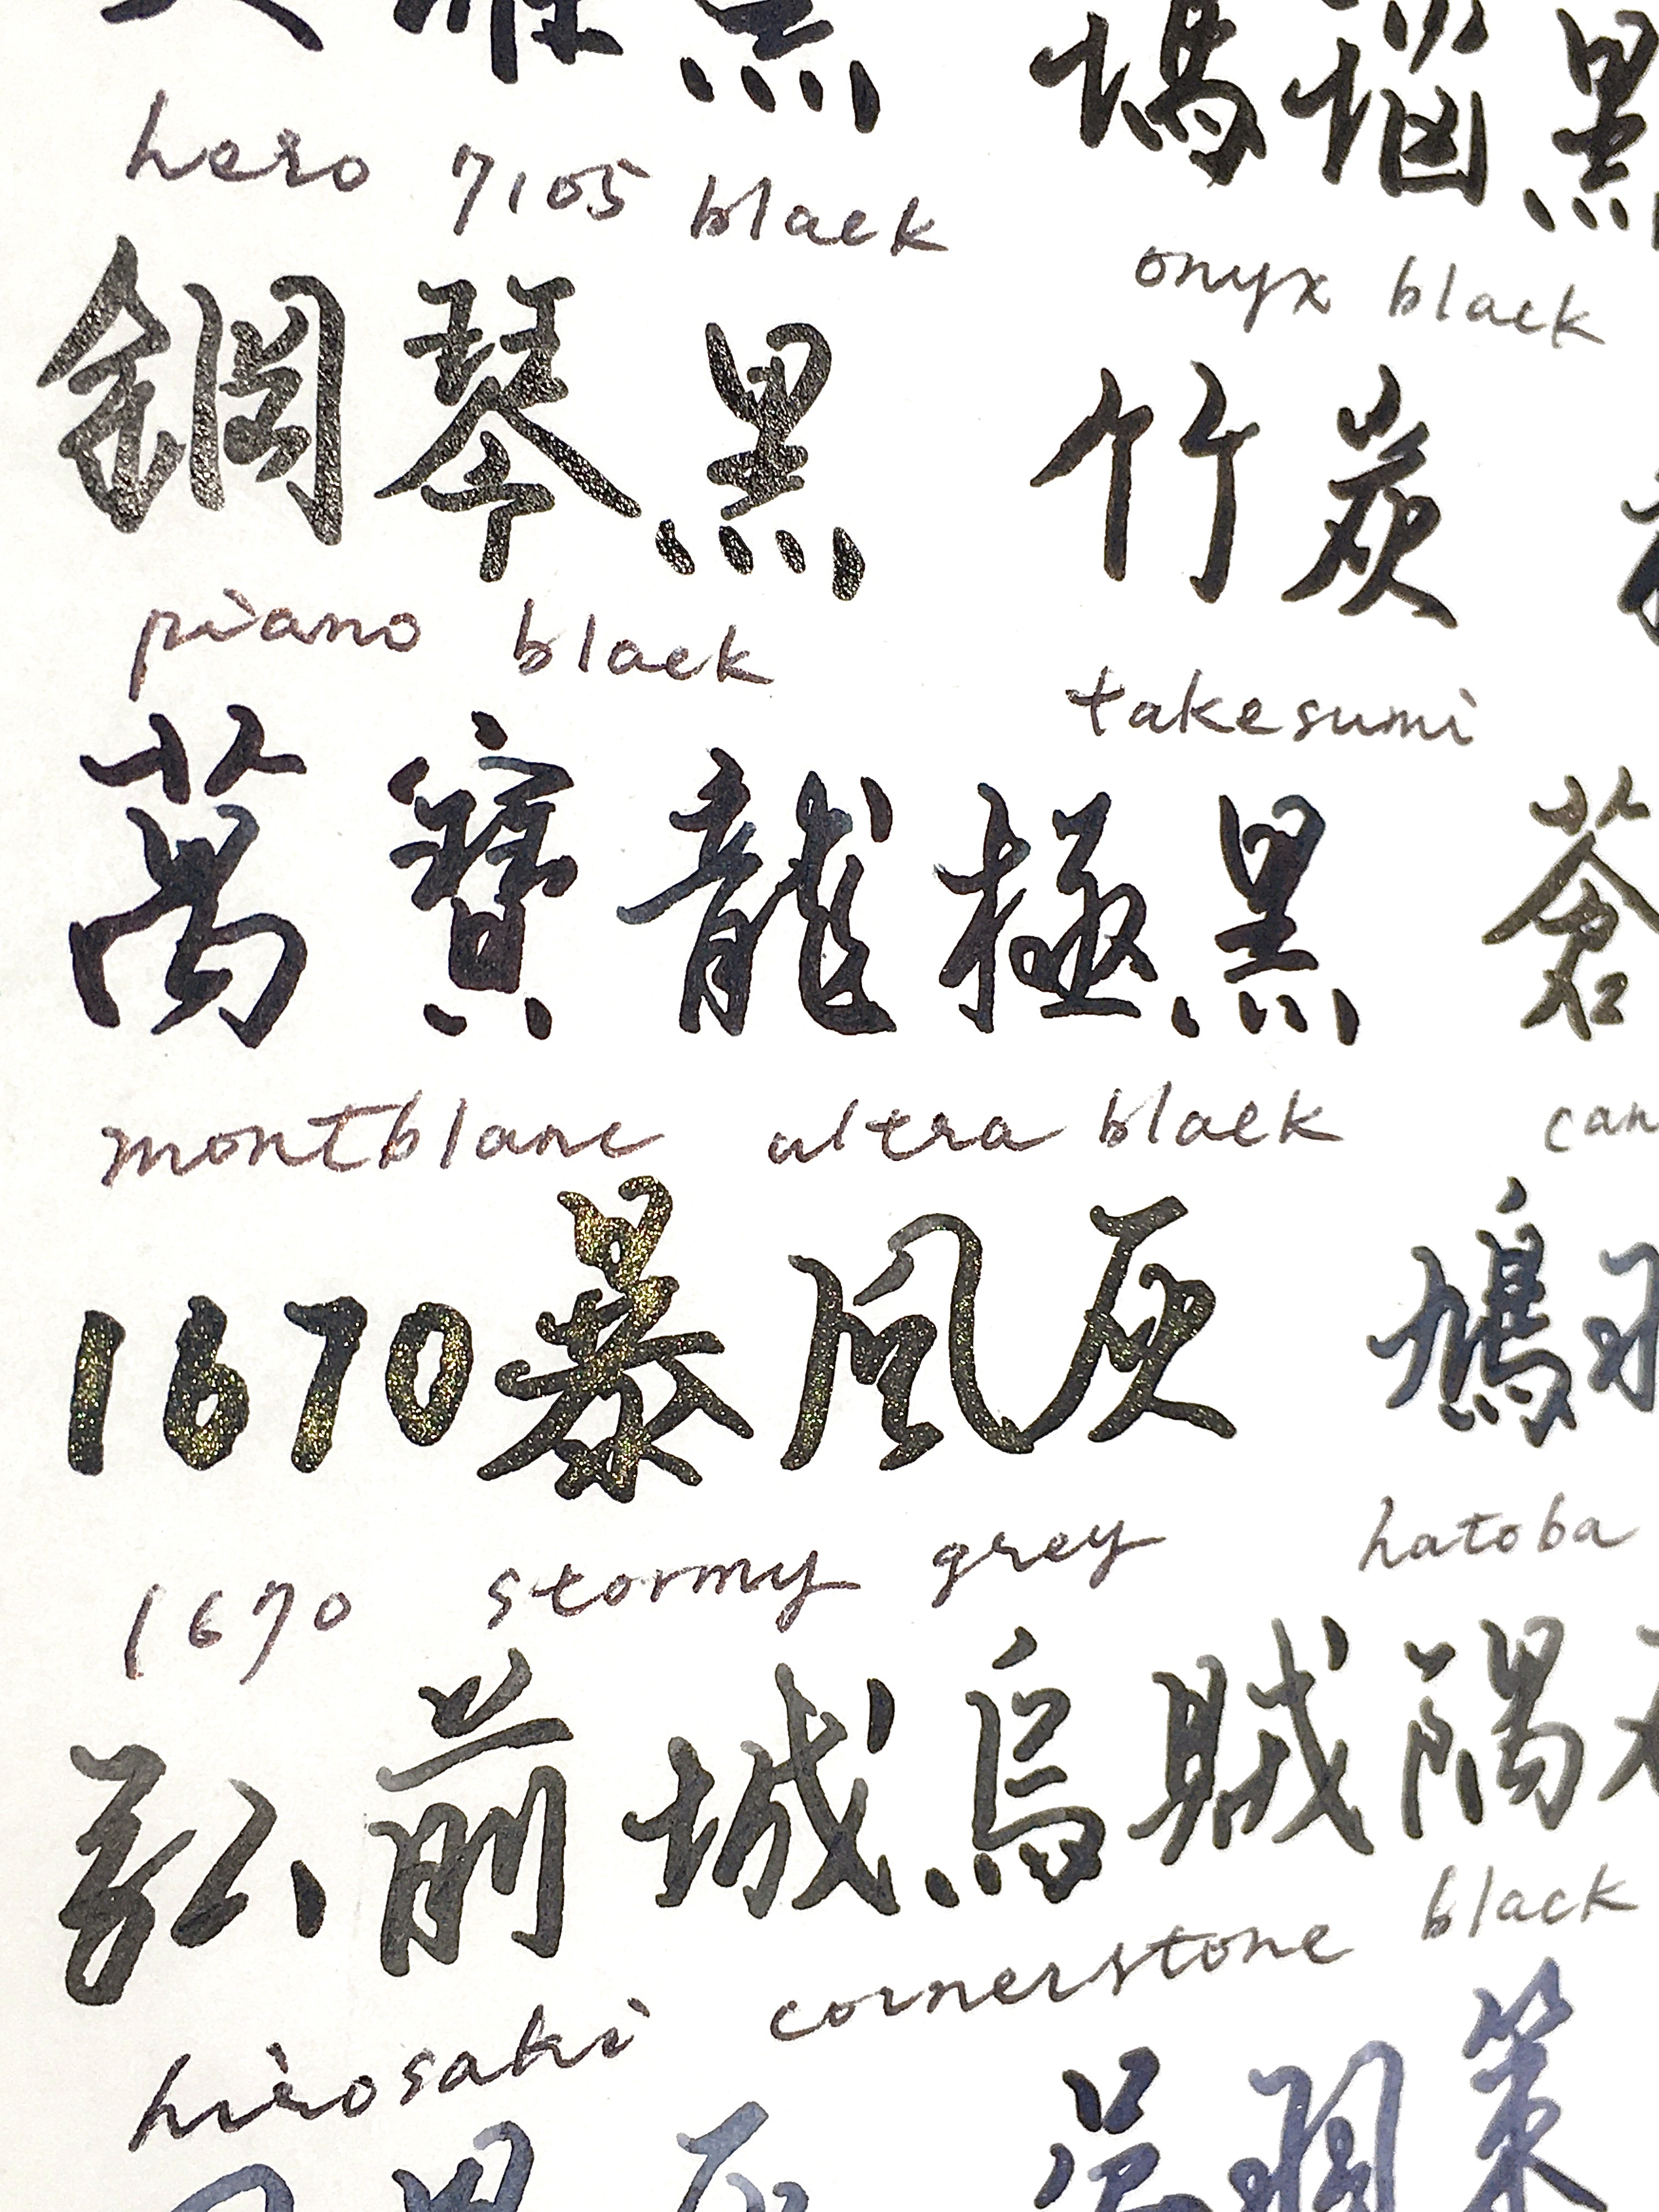 黑
瑪瑙黑
hero 7105 black
onyx black
鋼琴黑
竹炭
piano black
takesumi
萬寶龍極黑
蒼
montblanc ultra black
can
1670暴風灰
鳩羽
1670 stormy grey
hatoba
弘前城烏賊隅
hirosaki cornerstone black